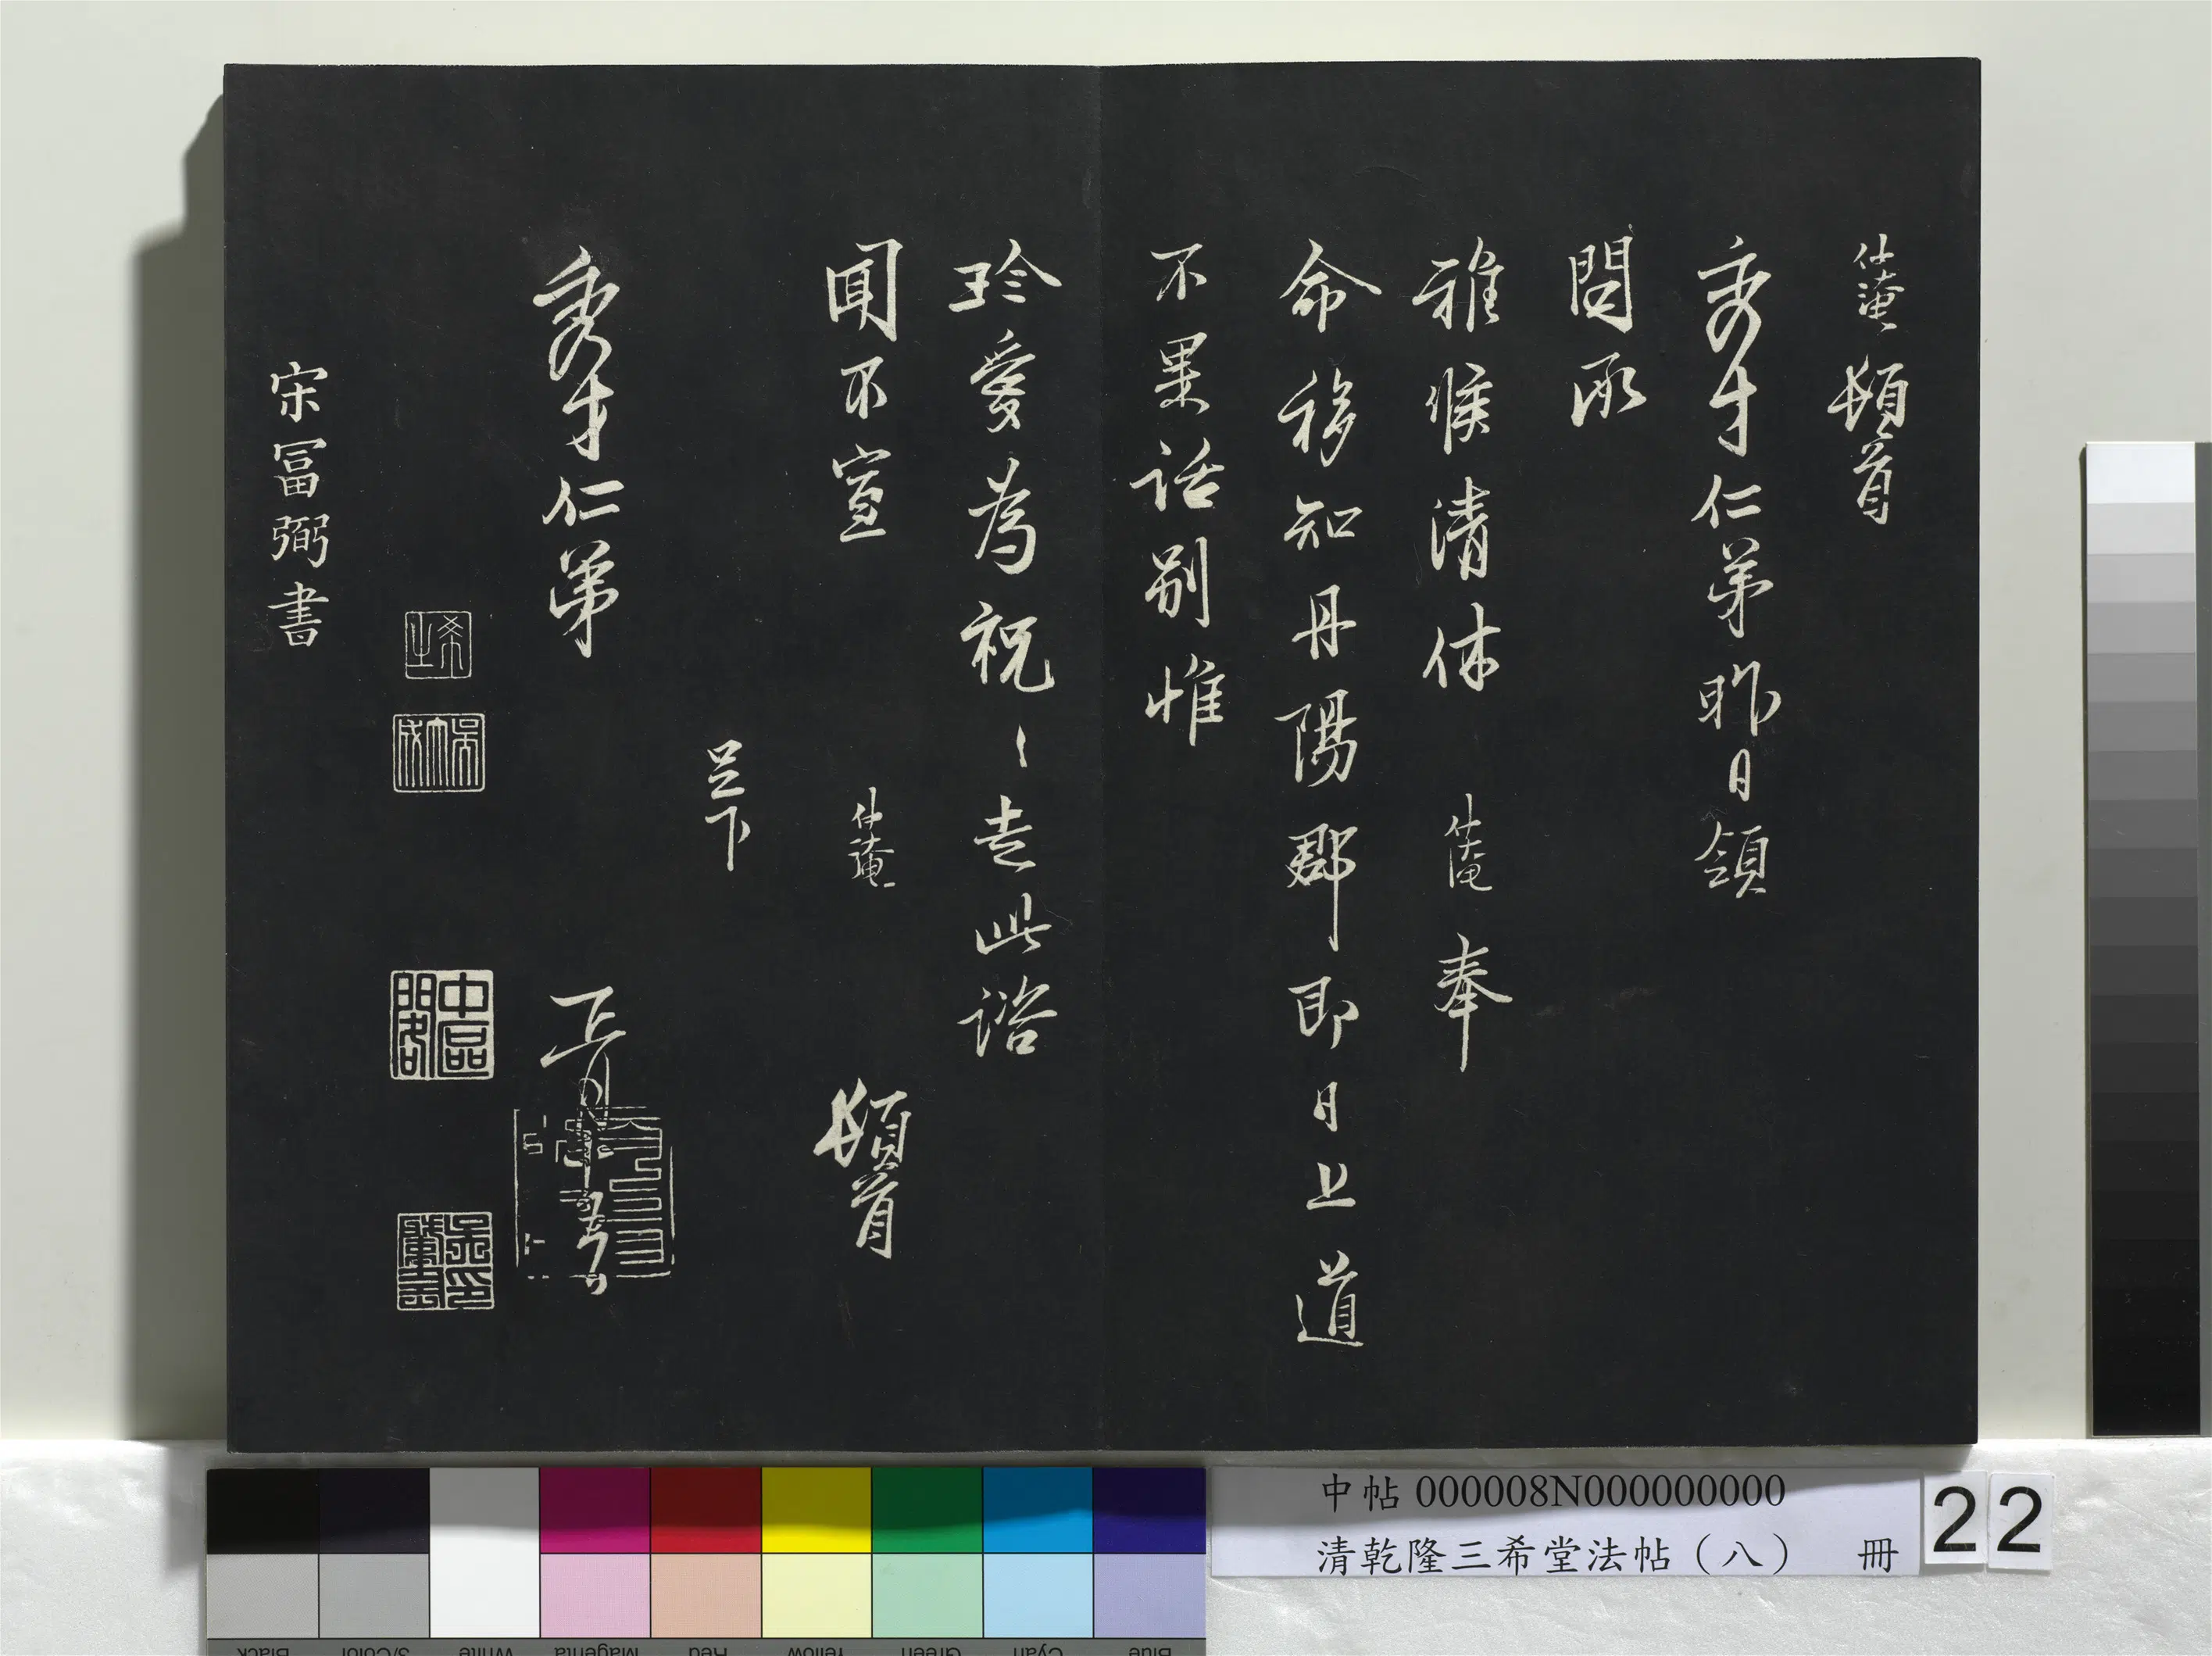 仲淹頓首
秀才仁弟昨日領
問承
雅候清休 仲淹奉
命移知丹陽郡即日上道
不果話别惟
珍愛為祝〻走此諮
聞不宣 仲淹 頓首
足下
秀才仁弟
宋冨弼書
中帖 000008N000000000
清乾隆三希堂法帖（八） 冊
22
Blue Cyan Green Yellow Red Magenta White 3/Color Black